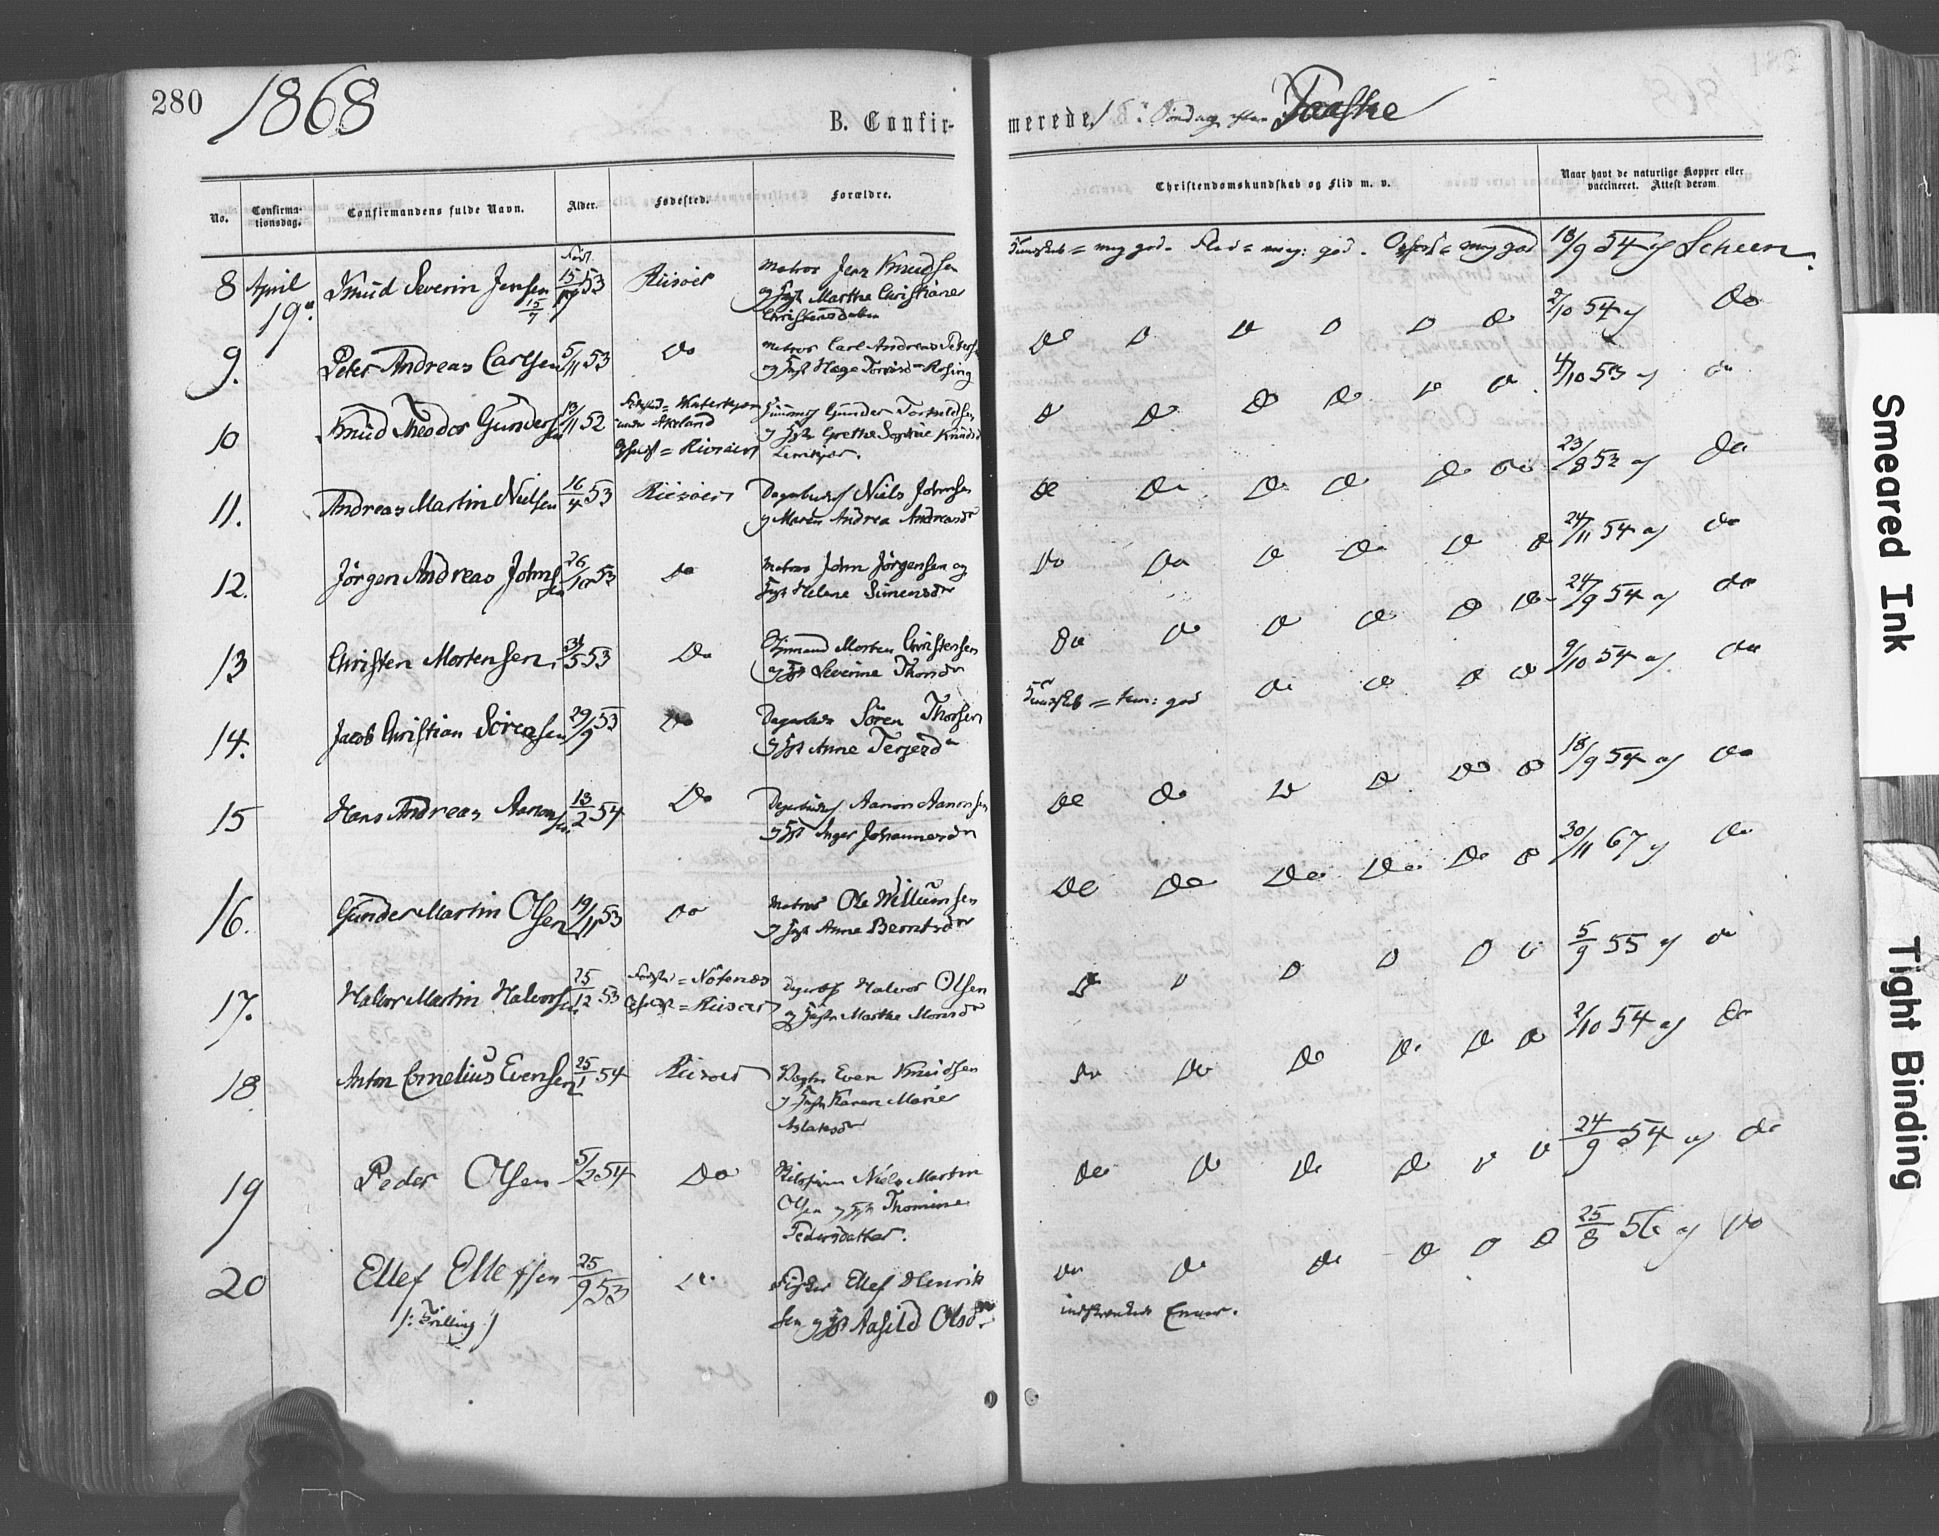 280 1868 B. Confir-
merede, Søndag efter Paaske
No. Confirma-tionsdag. Confirmandens fulde Navn. Alder. Fødested. Forældre.
Christendomskundskab og Flid m. v. Naar havt de naturlige Kopper eller vaccineret. Attest derom.
8 April 19de Knud Severin Jensen 15/7 født 53 Riisöer Matros Jens Knudsen
og Hst Marthe Christiane
Christensdatter
Kundskab = meg god. Flid = meg: god. Opførs = meg god 18/9 54 af Scheen.
9. Peter Andreas Carlsen 5/11 53 Do Matros Carl Andreas Peters
og Hst Hæge
Do Do Do Do Do Do 2/10 54 af Do
10 Knud Theodor Gundersen 13/11 52
under Akeland
Opholdst = Riisöer
Gunder Torkildsen
og Hst Grethe Sophie Knudsd
Do Do Do Do Do Do 4/10 53 af do
11. Andreas Martin Nielsen 16/4 53 Riisöer Dagarbeider Niels Johnsen
og Maren Andrea Andreasdr
Do Do Do Do Do Do 23/8 53 af Do
12. Jörgen Andreas Johnsen 26/10 53 Do Matros John Jörgensen og
Hst Helene Simonsdr
Do Do Do Do Do Do 24/11 54 af do
13 Christen Mortensen, 31/5 53 Do Styrmand Morten Christensen
og Hst Severine Thorsdr
Do Do Do Do Do Do 24/9 54 af do
14. Jacob Christian Sörensen 29/9 53 Do Dagarbeider Sören Thorsen
og Hst Anne Terjesdr
Kundskab = tem: god Do Do Do Do 9/10 54 af do
15 Hans Andreas Aanonsen 13/2 54 Do Dagarbeider Aanon Aanonsen
og Hst Inger Johannesdr
Do Do Do Do Do Do 18/9 54 af do
16. Gunder Martin Olsen 19/11 53 Do Matros Ole Willumsen
og Hst Anne Berntsdr
Do Do Do Do Do Do 30/11 67 af do
17. Halvor Martin Halvorsen 25/12 53 Fødest = Nötenæs
Opholdst = Riisöer
Halvor Olsen
og Hustr Marthe
Do Do Do Do Do Do 5/9 55 af do
18 Anton Cornelius Evensen 25/1 54 Riisöer Even Knudsen
og Hustr Karen Marie
Aslaksdr
Do Do Do Do Do Do 2/10 54 af Do
19 Peder Olsen 5/2 54 Do Niels Martin
Olsen og Hst Thomine
Pedersdatter.
Do Do Do Do Do Do 24/9 54 af do
20 Ellef Ellefsen 25/9 53 Do Fisker Ellef Henrik
/: Trilling :/ sen og Hst Aasild Olsdr
Do Do Do Do Do Do 25/8 56 af Do
indskrænkede Evner.
Smeared Ink
Tight Binding